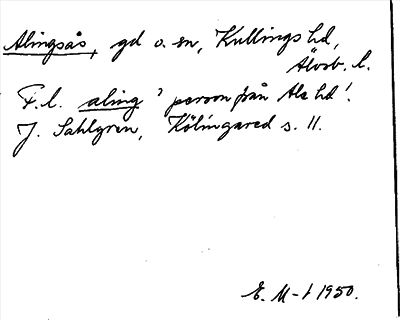 Alingsås, gd o. sn, Kullings hd,
Älvsb. l.
F. l. aling 'person från Ale hd'.
J. Sahlgren, Kölingared s. 11.
E. M-t 1950.